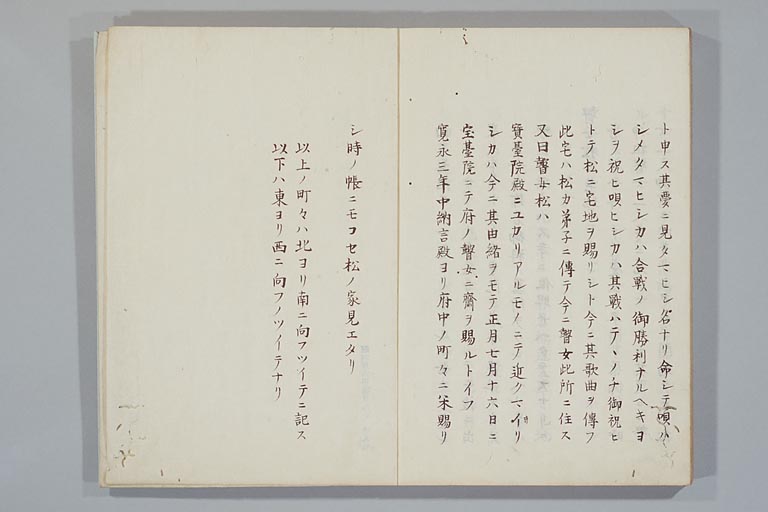 ト申ス其夢ニ見タマヒシ名ナリ命シテ唄ハ
シメタマヒシカハ合戦ノ御勝利ナルヘキヨ
シヲ祝ヒ唄ヒシカハ其戦ハテヽノチ御祝ヒ
トテ松ニ宅地ヲ賜リシト今ニ其歌曲ヲ傳フ
此宅ハ松カ弟子ニ傳テ今ニ瞽女此所ニ住ス
又曰瞽女松ハ
寳臺院殿ニユカリアルモノニテ近クマイリ
シカハ今ニ其由緒ヲモテ正月七月十六日ニ
宝臺院ニテ府ノ瞽女ニ齋ヲ賜ルトイフ
寛永三年中納言殿ヨリ府中ノ町々ニ米賜リ
シ時ノ帳ニモコセ松ノ家見エタリ
以上ノ町々ハ北ヨリ南ニ向フツイテニ記ス
以下ハ東ヨリ西ニ向フノツイテナリ